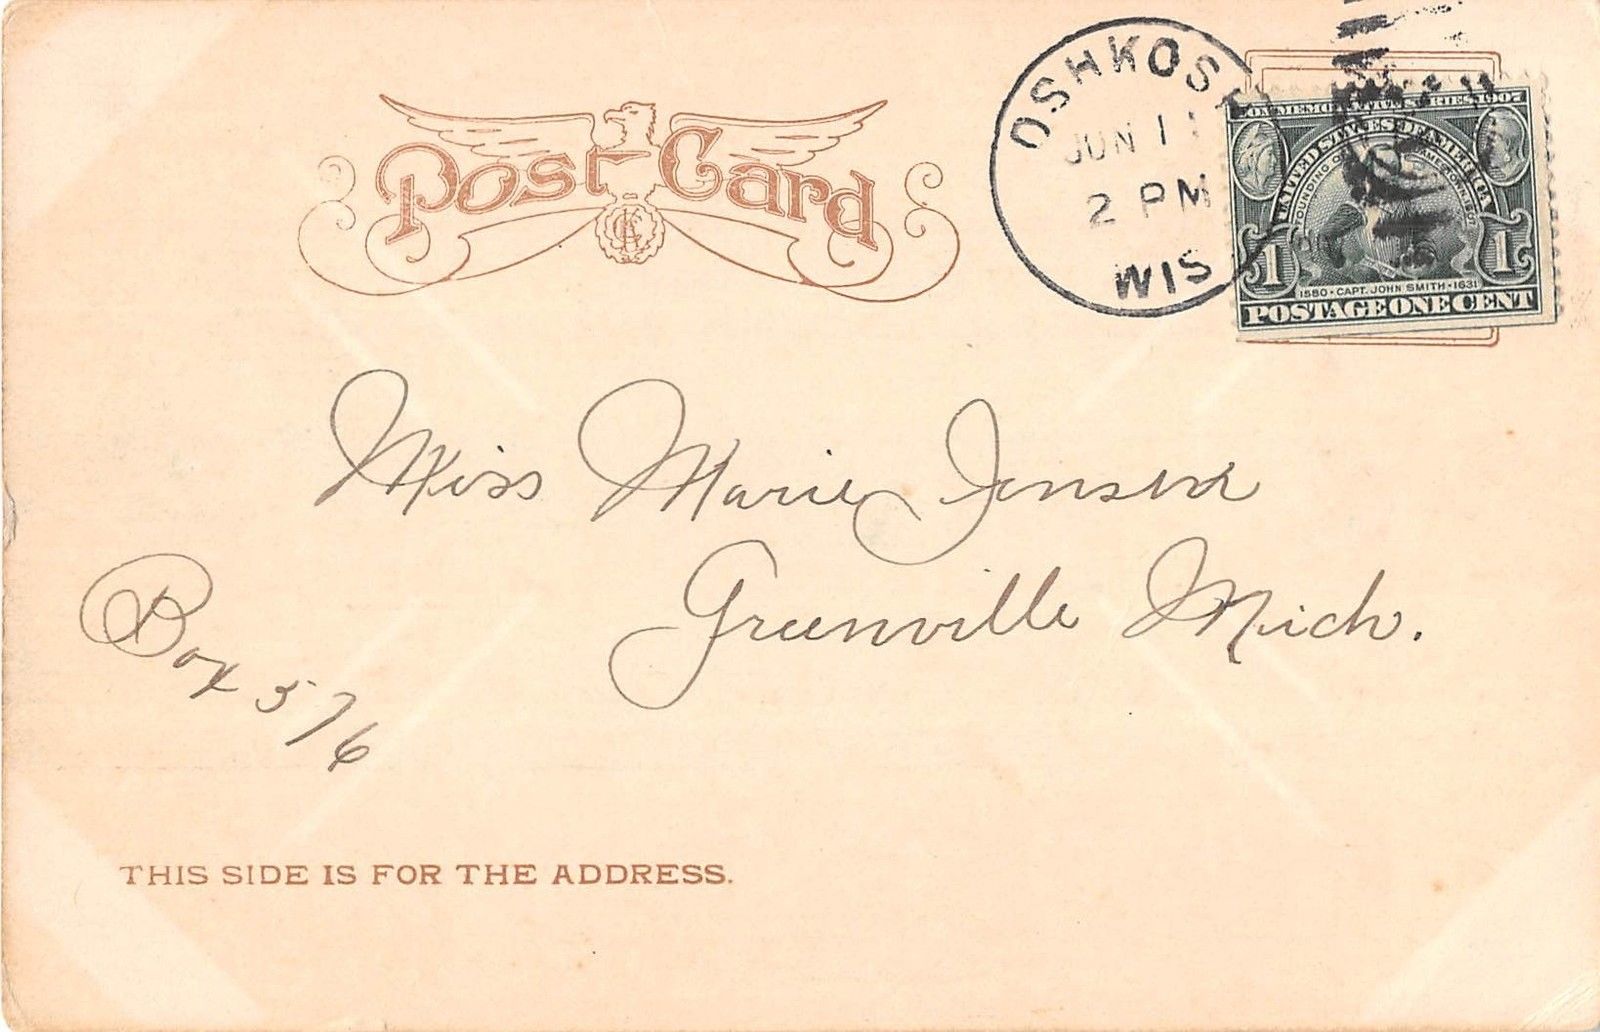 Post Card
OSHKOSH
JUN 11
2 PM
WIS
COMMEMORATIVE SERIES 1907
UNITED STATES OF AMERICA
FOUNDING OF JAMESTOWN 1607
1 1
1580 · CAPT. JOHN SMITH · 1631
POSTAGE ONE CENT
Miss Marie Jensen
Greenville Mich.
Box 576
THIS SIDE IS FOR THE ADDRESS.